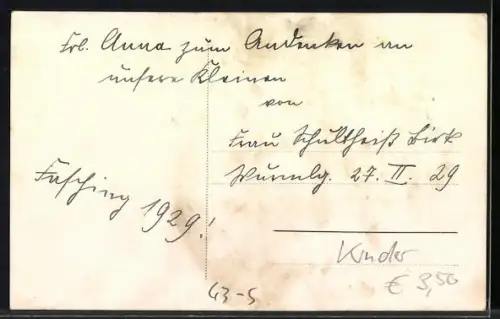 Frl. Anna zum Andenken an
unsere Kleinen
von
Frau Schultheiß Birk
Wurmlg. 27. II. 29
Fasching 1929!
Kinder
€ 3,50
43-5